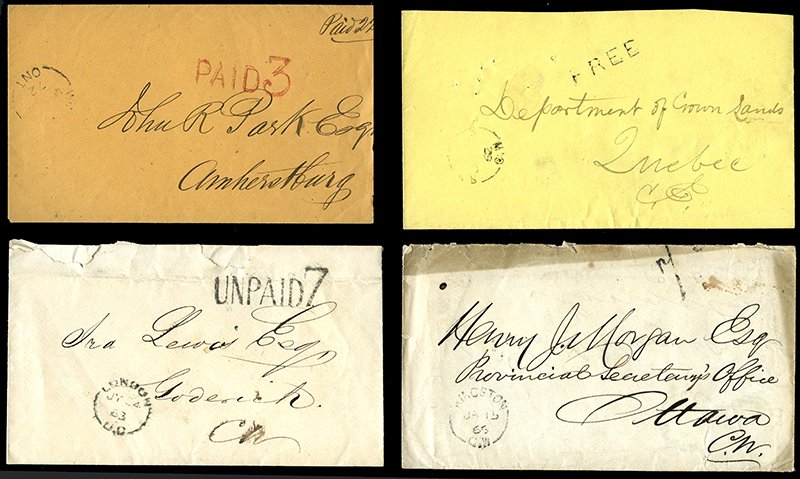 Paid
PAID 3
ONT
John R Park Esq
Amherstburg
FREE
Department of Crown Lands
Quebec
UNPAID 7
Ira Lewis Esq
Goderich.
CW
LONDON
JY 24
63
U.C
Henry J. Morgan Esq
Provincial Secretary's Office
Ottawa
C.W.
KINGSTON
JA 15
66
C.W